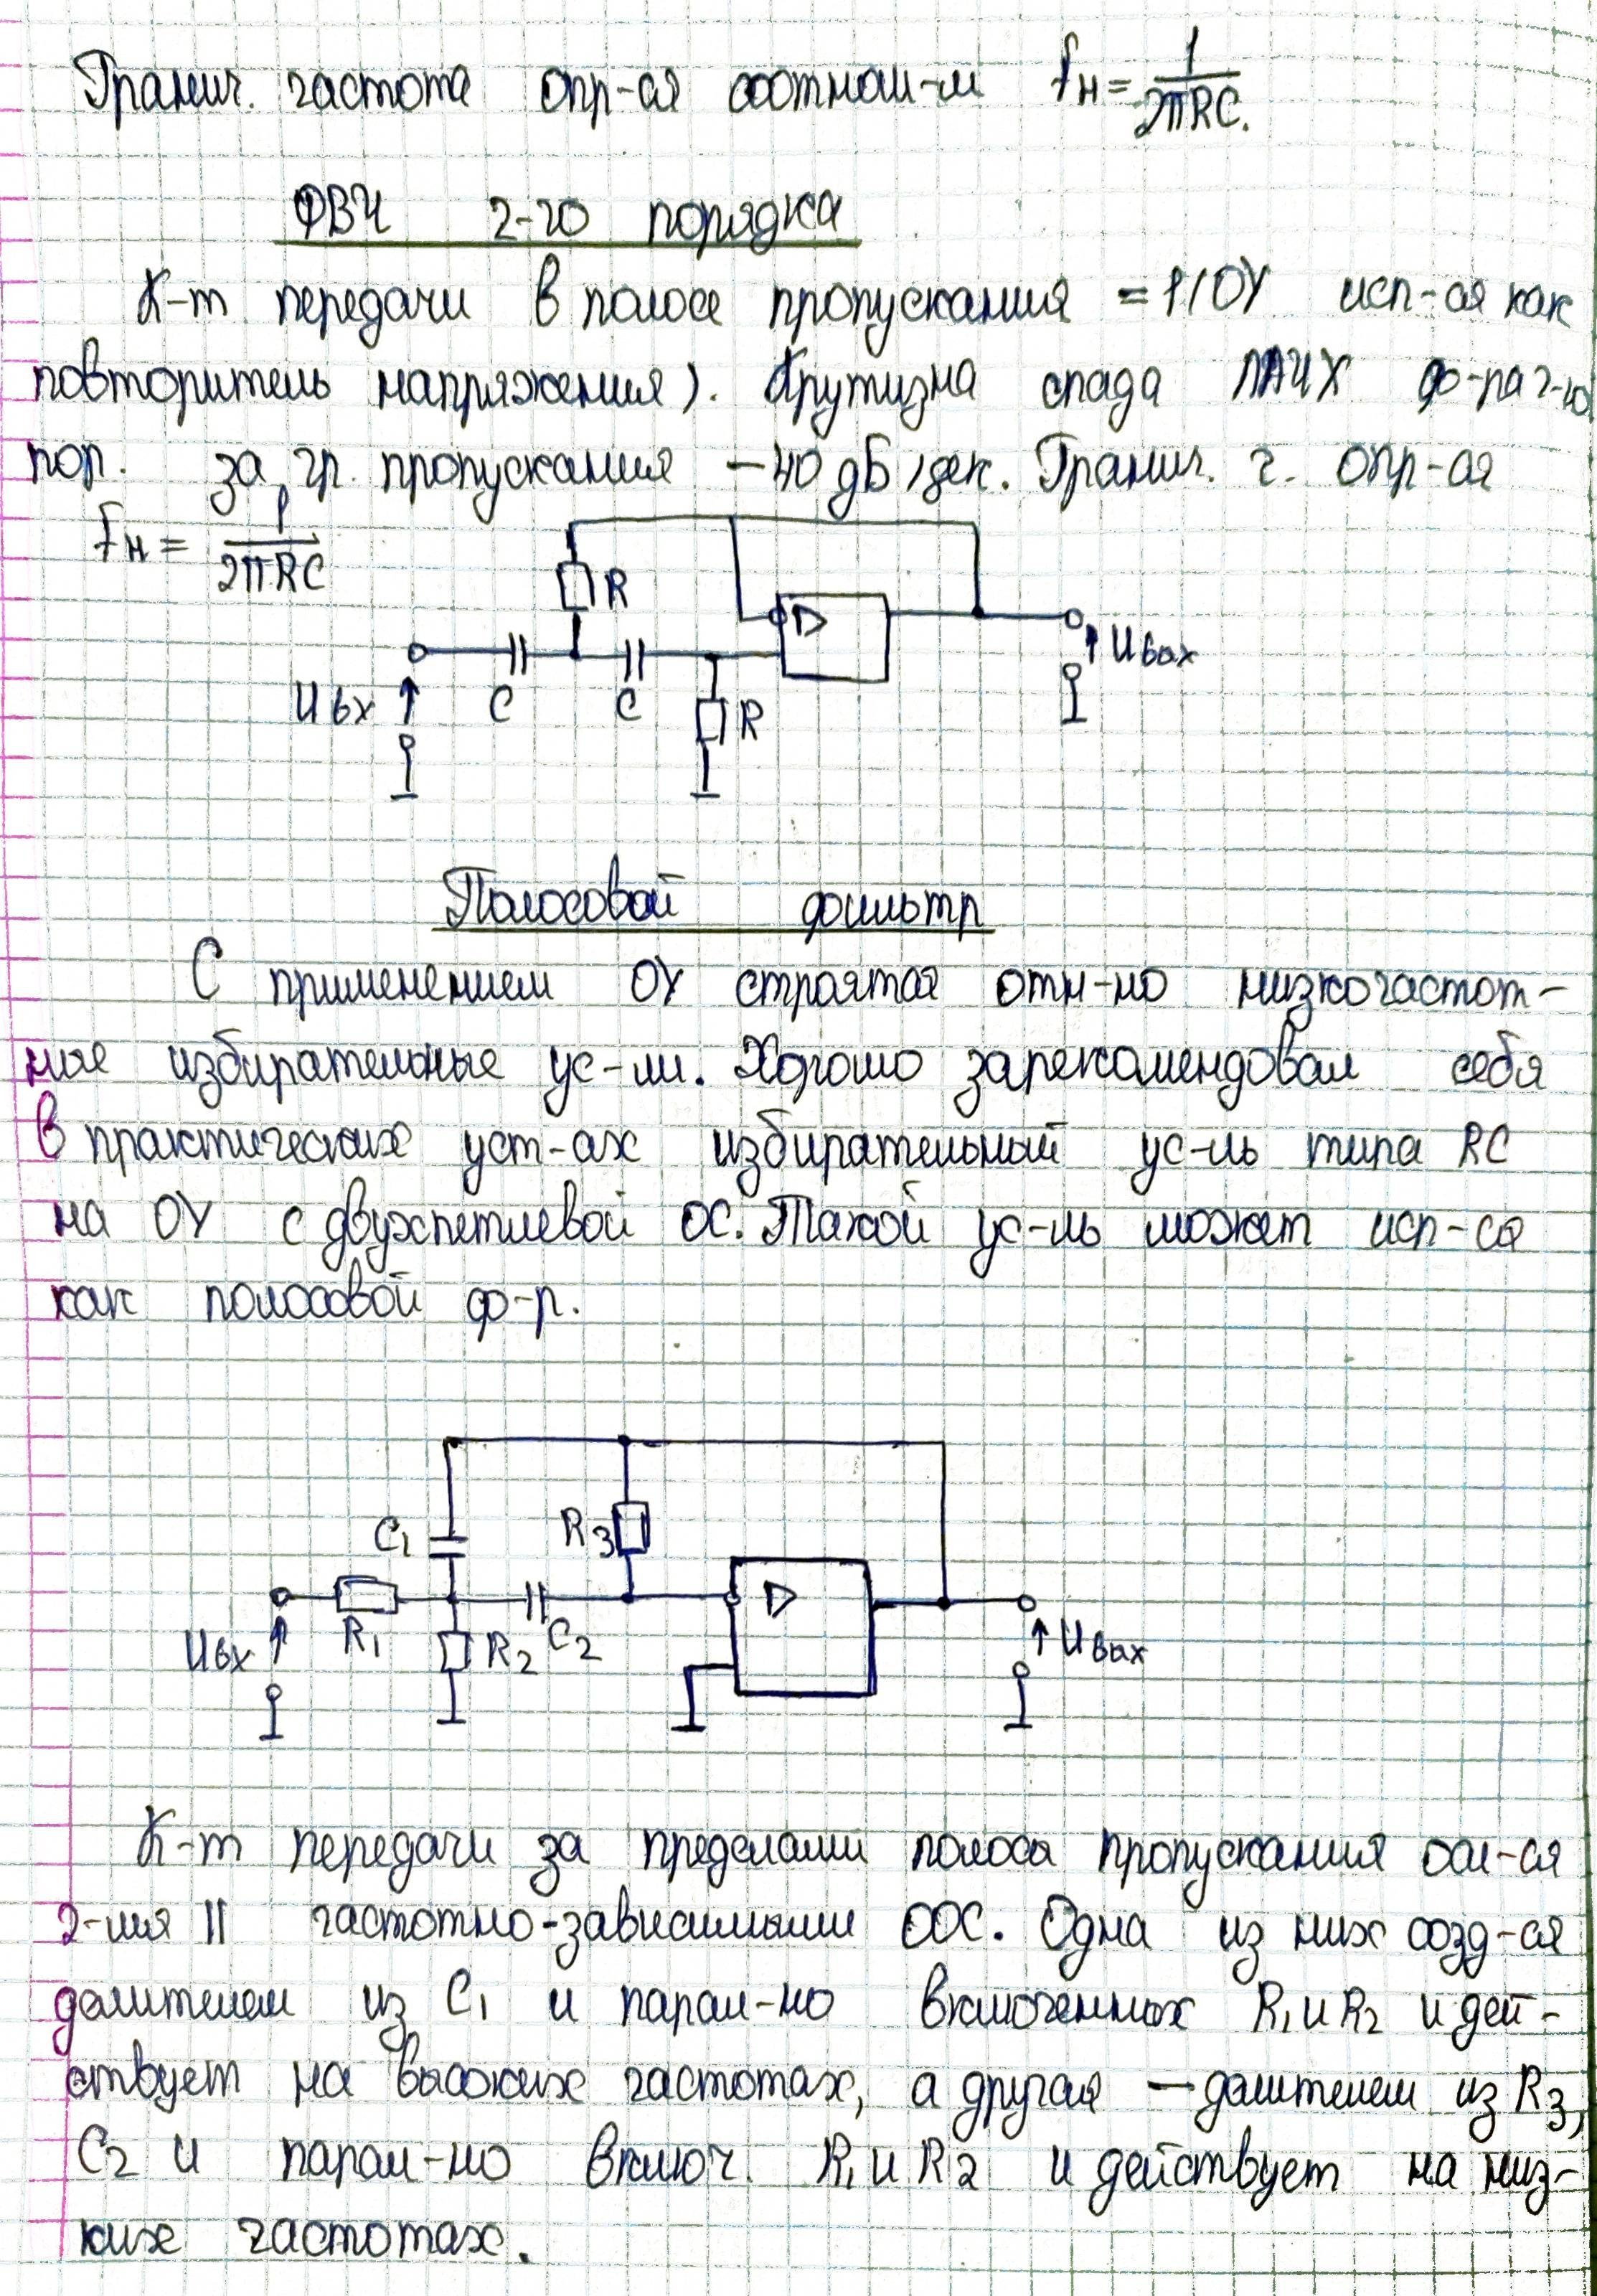 Гранич. частота опр-ся соотнош-м fн = 1/2πRC.
ФВЧ 2-го порядка
К-т передачи в полосе пропускания =1 (ОУ исп-ся как
повторитель напряжения). Крутизна спада ЛАЧХ ф-ра 2-го
пор. за гр. пропускания -40 дБ/дек. Гранич. ч. опр-ся
fн = 1/2πRC
R
Uвх C C R Uвых
Полосовой фильтр
С применением ОУ строятся отн-но низкочастот-
ные избирательные ус-ли. Хорошо зарекомендовал себя
в практических уст-ах избирательный ус-ль типа RC
на ОУ с двухпетлевой ОС. Такой ус-ль может исп-ся
как полосовой ф-р.
C1 R3
Uвх R1 R2 C2 Uвых
К-т передачи за пределами полосы пропускания осл-ся
2-мя || частотно-зависимыми ООС. Одна из них созд-ся
делителем из C1 и парал-но включенных R1 и R2 и дей-
ствует на высоких частотах, а другая — делителем из R3,
C2 и парал-но включ. R1 и R2 и действует на низ-
ких частотах.